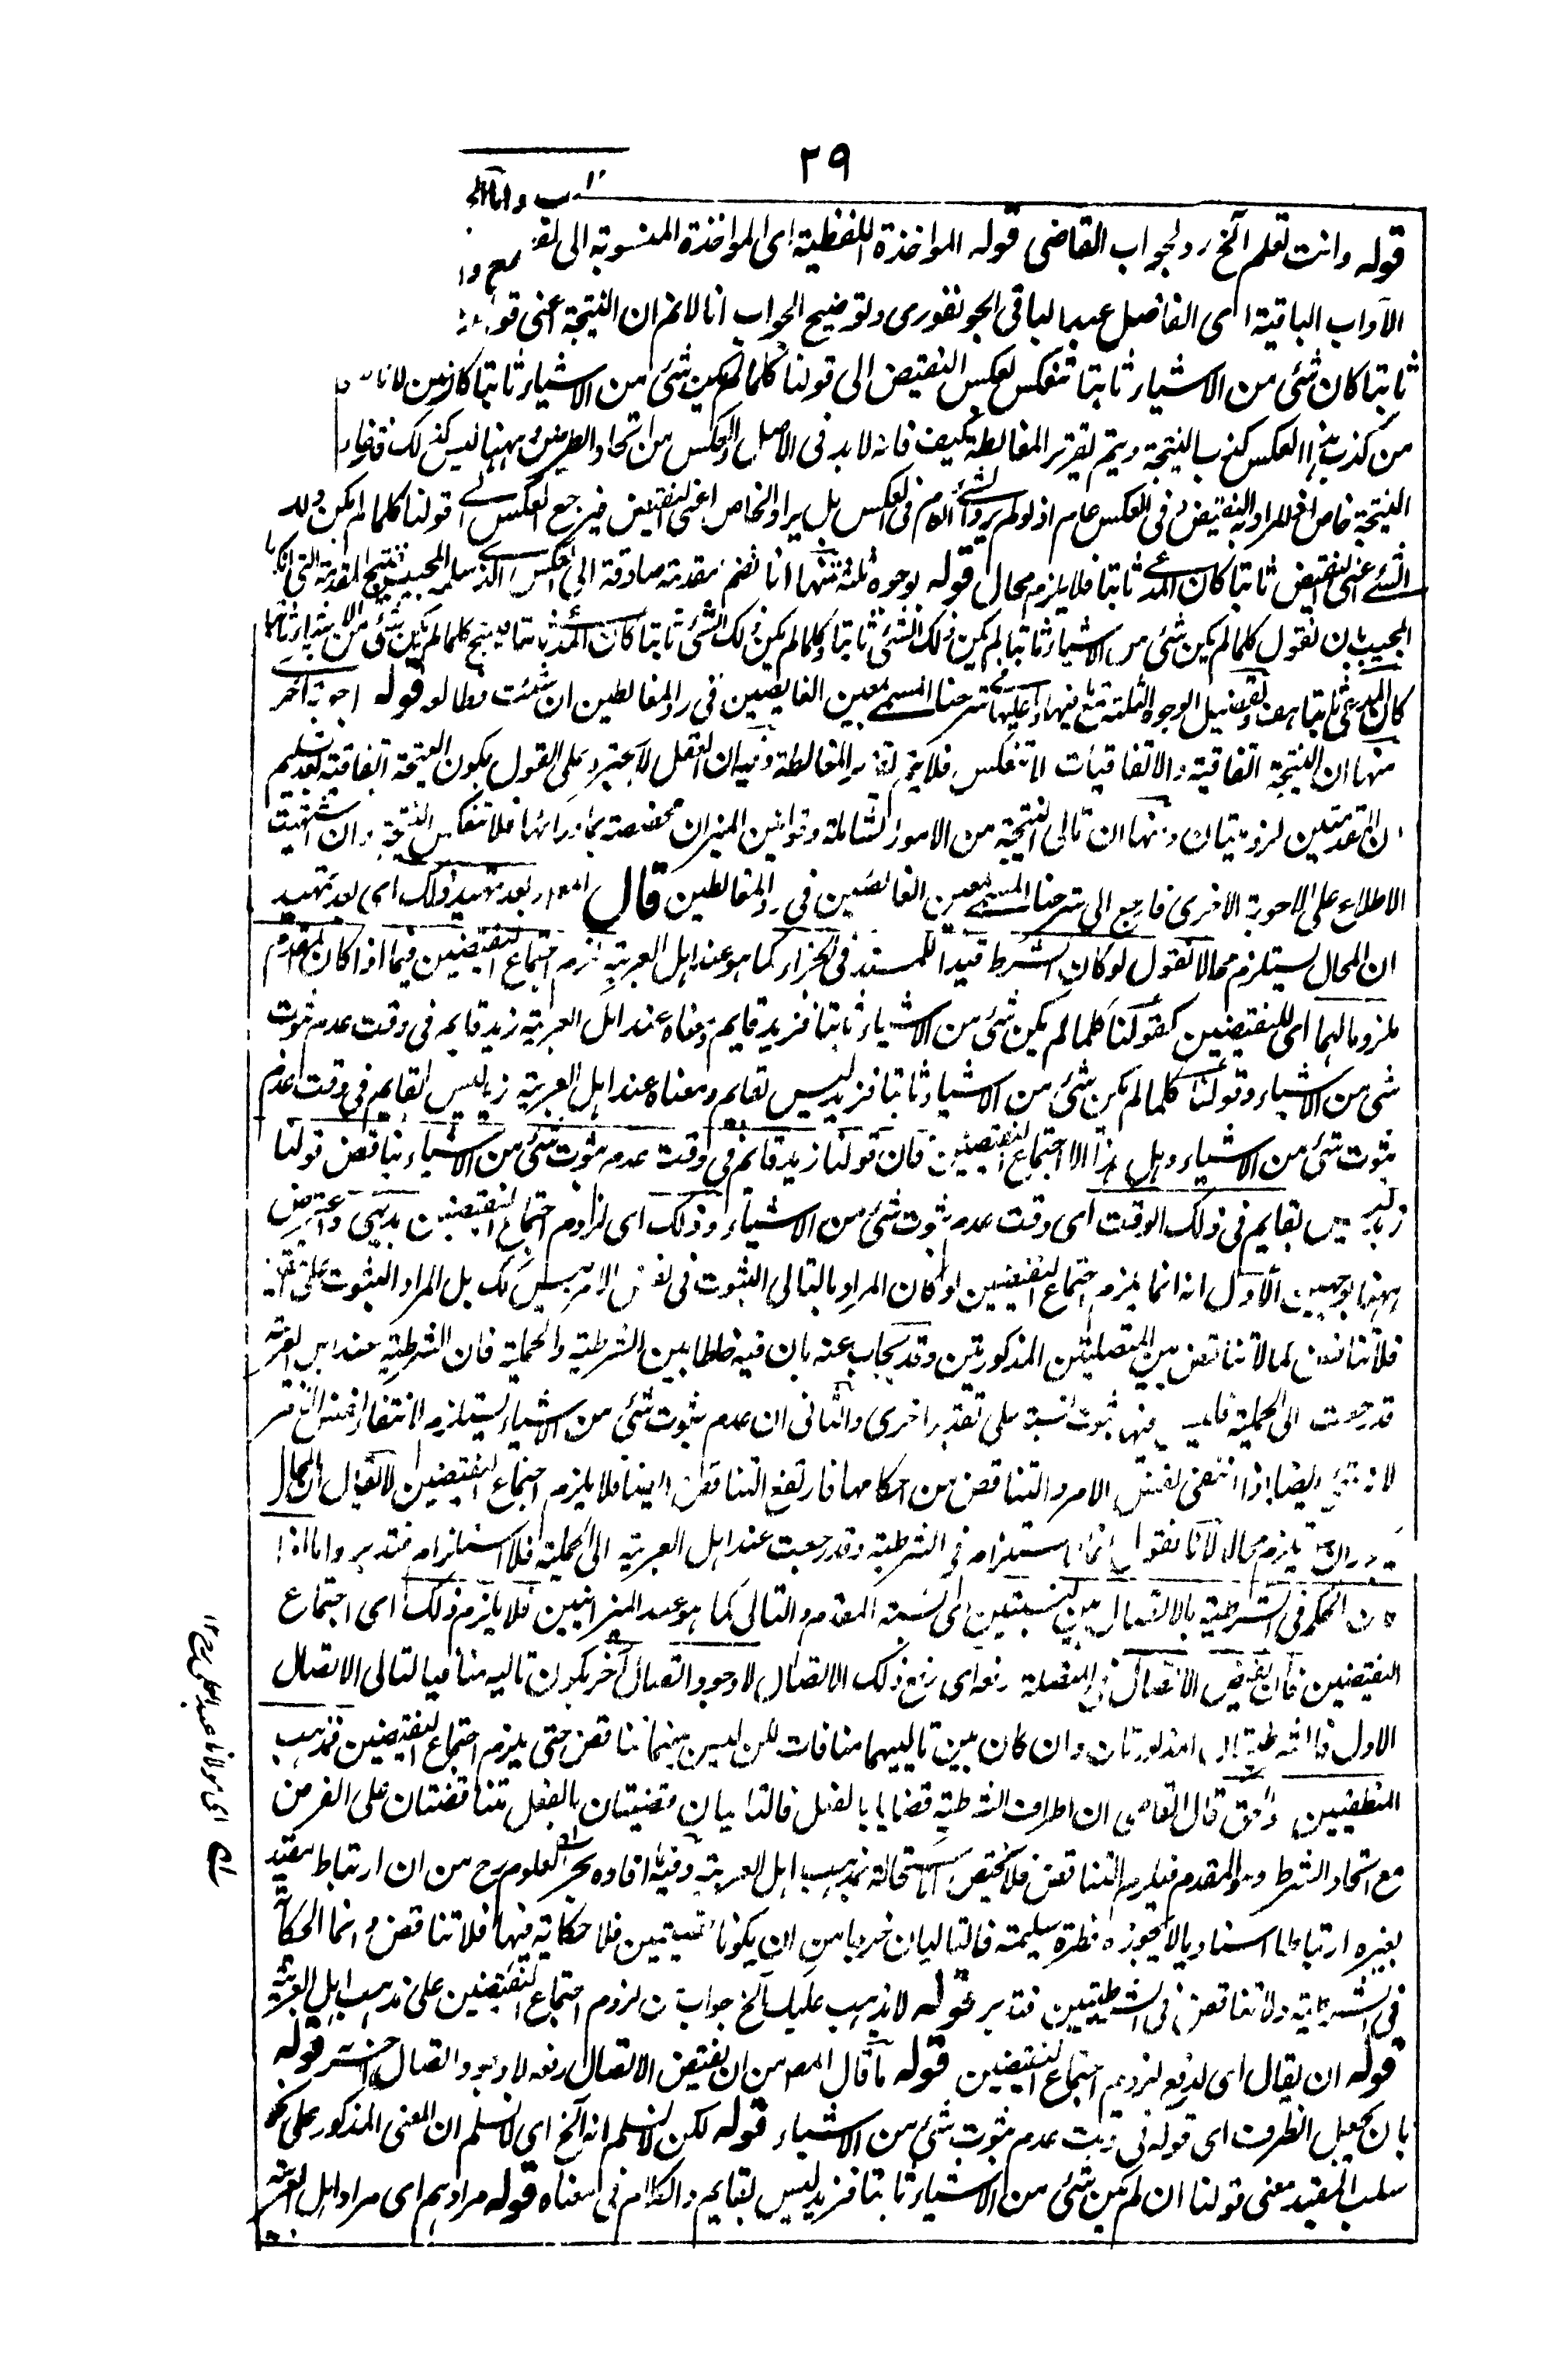 ٢٩
قوله وانت تعلم آلخ رد لجواب القاضى قوله المواخذة اللفظية اى المواخذة المنسوبة الى
الآداب الباقية اى الفاضل عبد الباقى الجونفورى وتوضيح الجواب انا لانم ان النتيجة اعنى قولنا
ثابتا كان شئ من الاشياء ثابتا تنعكس بعكس النقيض الى قولنا كلما لم يكن شئ من الاشياء ثابتا كان
من كذب هذا العكس كذب النتيجة ويتم تقرير المغالطة كيف فانه لا بد فى الاصل والعكس من اتحاد الطرفين وههنا ليس كذلك
النتيجة خاص اذ المراد به النقيض وفى العكس عام اذ لو لم يرد الشئ العام فى العكس بل يراد الخاص اعنى النقيض فيرجع العكس الى قولنا كلما لم يكن ذلك
الشئ اعنى النقيض ثابتا كان المدعى ثابتا فلا يلزم محال قوله بوجوه ثلثة منها انا نضم مقدمة صادقة الى العكس الذى سلمه المجيب فتنتج المقدمة التى انكرها
المجيب بان نقول كلما لم يكن شئ من الاشياء ثابتا لم يكن ذلك الشئ ثابتا وكلما لم يكن ذلك الشئ ثابتا كان المدعى ثابتا ينتج كلما لم يكن شئ من الاشياء ثابتا
كان المدعى ثابتا هف وتفصيل الوجوه الثلثة مع فيها وعليها فى شرحنا المسمى بمعين الغائصين فى رد المغالطين ان شئت فطالعه قوله اجوبة اخر
منها ان النتيجة اتفاقية والاتفاقيات لا تنعكس فلا يتم تقرير المغالطة وفيه ان العقل لا يجترء على القول بكون النتيجة اتفاقية بعد تسليم
ان المقدمتين لزوميتان ومنها ان تالى النتيجة من الامور الشاملة وقوانين الميزان مخصصة بما ورائها فلا تنعكس النتيجة وان اشتهيت
الاطلاع على الاجوبة الاخرى فارجع الى شرحنا المسمى بمعين الغائصين فى رد المغالطين قال المص وبعد تمهيد ذلك اى بعد تمهيد
ان المحال يستلزم محالا نقول لو كان الشرط قيدا للمسند فى الجزاء كما هو عند اهل العربية يلزم اجتماع النقيضين فيما اذا كان المقدم
ملزوما لهما اى للنقيضين كقولنا كلما لم يكن شئ من الاشياء ثابتا فزيد قايم ومعناه عند اهل العربية زيد قايم فى وقت عدم ثبوت
شئ من الاشياء وقولنا كلما لم يكن شئ من الاشياء ثابتا فزيد ليس بقايم ومعناه عند اهل العربية زيد ليس بقايم فى وقت عدم
ثبوت شئ من الاشياء وهل هذا الا اجتماع النقيضين فان قولنا زيد قائم فى وقت عدم ثبوت شئ من الاشياء يناقض قولنا
زيد ليس بقايم فى ذلك الوقت اى وقت عدم ثبوت شئ من الاشياء وذلك اى لزوم اجتماع النقيضين بديهى واعترض
ههنا بوجهين الاول انه انما يلزم اجتماع النقيضين لو كان المراد بالتالى الثبوت فى نفس الامر وليس كك بل المراد الثبوت على تقدير
فلا تناقض كما لا تناقض بين المتصلتين المذكورتين وقد يجاب عنه بان فيه خلطا بين الشرطية والحملية فان الشرطية عند اهل العربية
قد رجعت الى الحملية فليس فيها ثبوت نسبة على تقدير اخرى والثانى ان عدم ثبوت شئ من الاشياء يستلزم الانتفاء نفس الامر
لانه شئ ايضا اذا انتفى نفس الامر والتناقض من احكامها فارتفع التناقض ايضا فلا يلزم اجتماع النقيضين لا يقال المحال
يستلزم محالا لانا نقول انما استلزامه فى الشرطية وقد رجعت عند اهل العربية الى الحملية فلا استلزام فتدبر واما اذا
كان الحكم فى الشرطية بالاتصال بين النسبتين اى نسبة المقدم والتالى كما هو عند الميزانيين فلا يلزم ذلك اى اجتماع
النقيضين فان نقيض الاتصال فى المتصلة رفعه اى رفع ذلك الاتصال لا وجود اتصال آخر يكون تاليه منافيا لتالى الاتصال
الاول فالشرطيتان المذكورتان وان كان بين تالييهما منافات لكن ليس بينهما تناقض حتى يلزم اجتماع النقيضين فمذهب
المنطقيين واحق قال القاضى ان اطراف الشرطية قضايا بالفعل فالتاليان قضيتان بالفعل متناقضتان على الفرض
مع اتحاد الشرط وهو المقدم فيلزم التناقض فلا يختص الاستحالة بمذهب اهل العربية وفيه ما افاده بحر العلوم رح من ان ارتباط مقيد
بغيره ارتباطا اسناديا لا يجوزه فطرة سليمة فالتاليان خرجا من ان يكونا قضيتين فلا حكاية فيهما فلا تناقض وانما الحكاية
فى الشرطية ولا تناقض فى الشرطيتين فتدبر قوله لا يذهب عليك آلخ جواب لزوم اجتماع النقيضين على مذهب اهل العربية
قوله ان يقال اى لدفع لزوم اجتماع النقيضين قوله ما قال المص من ان نقيض الاتصال رفعه لا وجود اتصال آخر قوله
بان يجعل الظرف اى قوله فى وقت عدم ثبوت شئ من الاشياء قوله لكن لا نسلم انه آلخ اى لا نسلم ان المعنى المذكور على نحو
سلب المقيد معنى قولنا ان لم يكن شئ من الاشياء ثابتا فزيد ليس بقايم والكلام فى معناه قوله مرادهم اى مراد اهل العربية